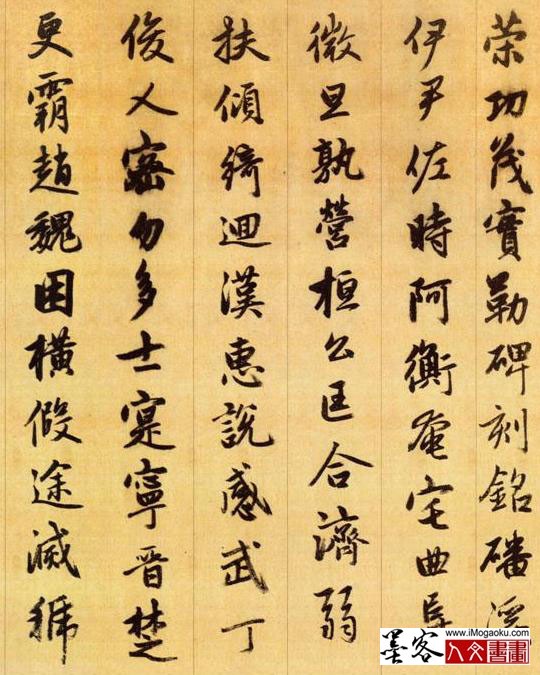 策功茂實勒碑刻銘磻溪
伊尹佐時阿衡奄宅曲阜
微旦孰營桓公匡合濟弱
扶傾綺迴漢惠說感武丁
俊乂密勿多士寔寧晉楚
更霸趙魏困橫假途滅虢
墨客
www.iMogaoku.com
人文書畫